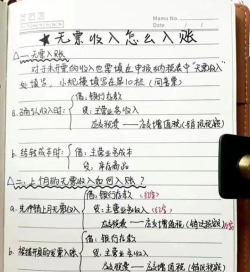 Memo No.
Date / /
★无票收入怎么入账
一、无票入账
对于未开票的收入也要填在申报纳税表中"无票收入"
处填写,小规模填写在第10栏(同普票)
a. 确认收入时:借:银行存款
贷:主营业务收入
应交税费——应交增值税(销项税额)
b. 结转成本时:借:主营业务成本
贷:库存商品
二、上月的无票收入如何入账?
借:银行存款(红字)
a. 先冲销上月无票收入 贷:主营业务收入(红字)
应交税费——应交增值税(销项税额)
借:银行存款
b. 按照开的发票入账 贷:主营业务收入
应交税费——应交增值税(销项税额)